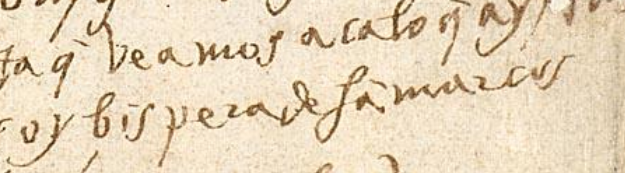 ta q̃ beamos acabo q̃ ay
oy bispera de sã marcos